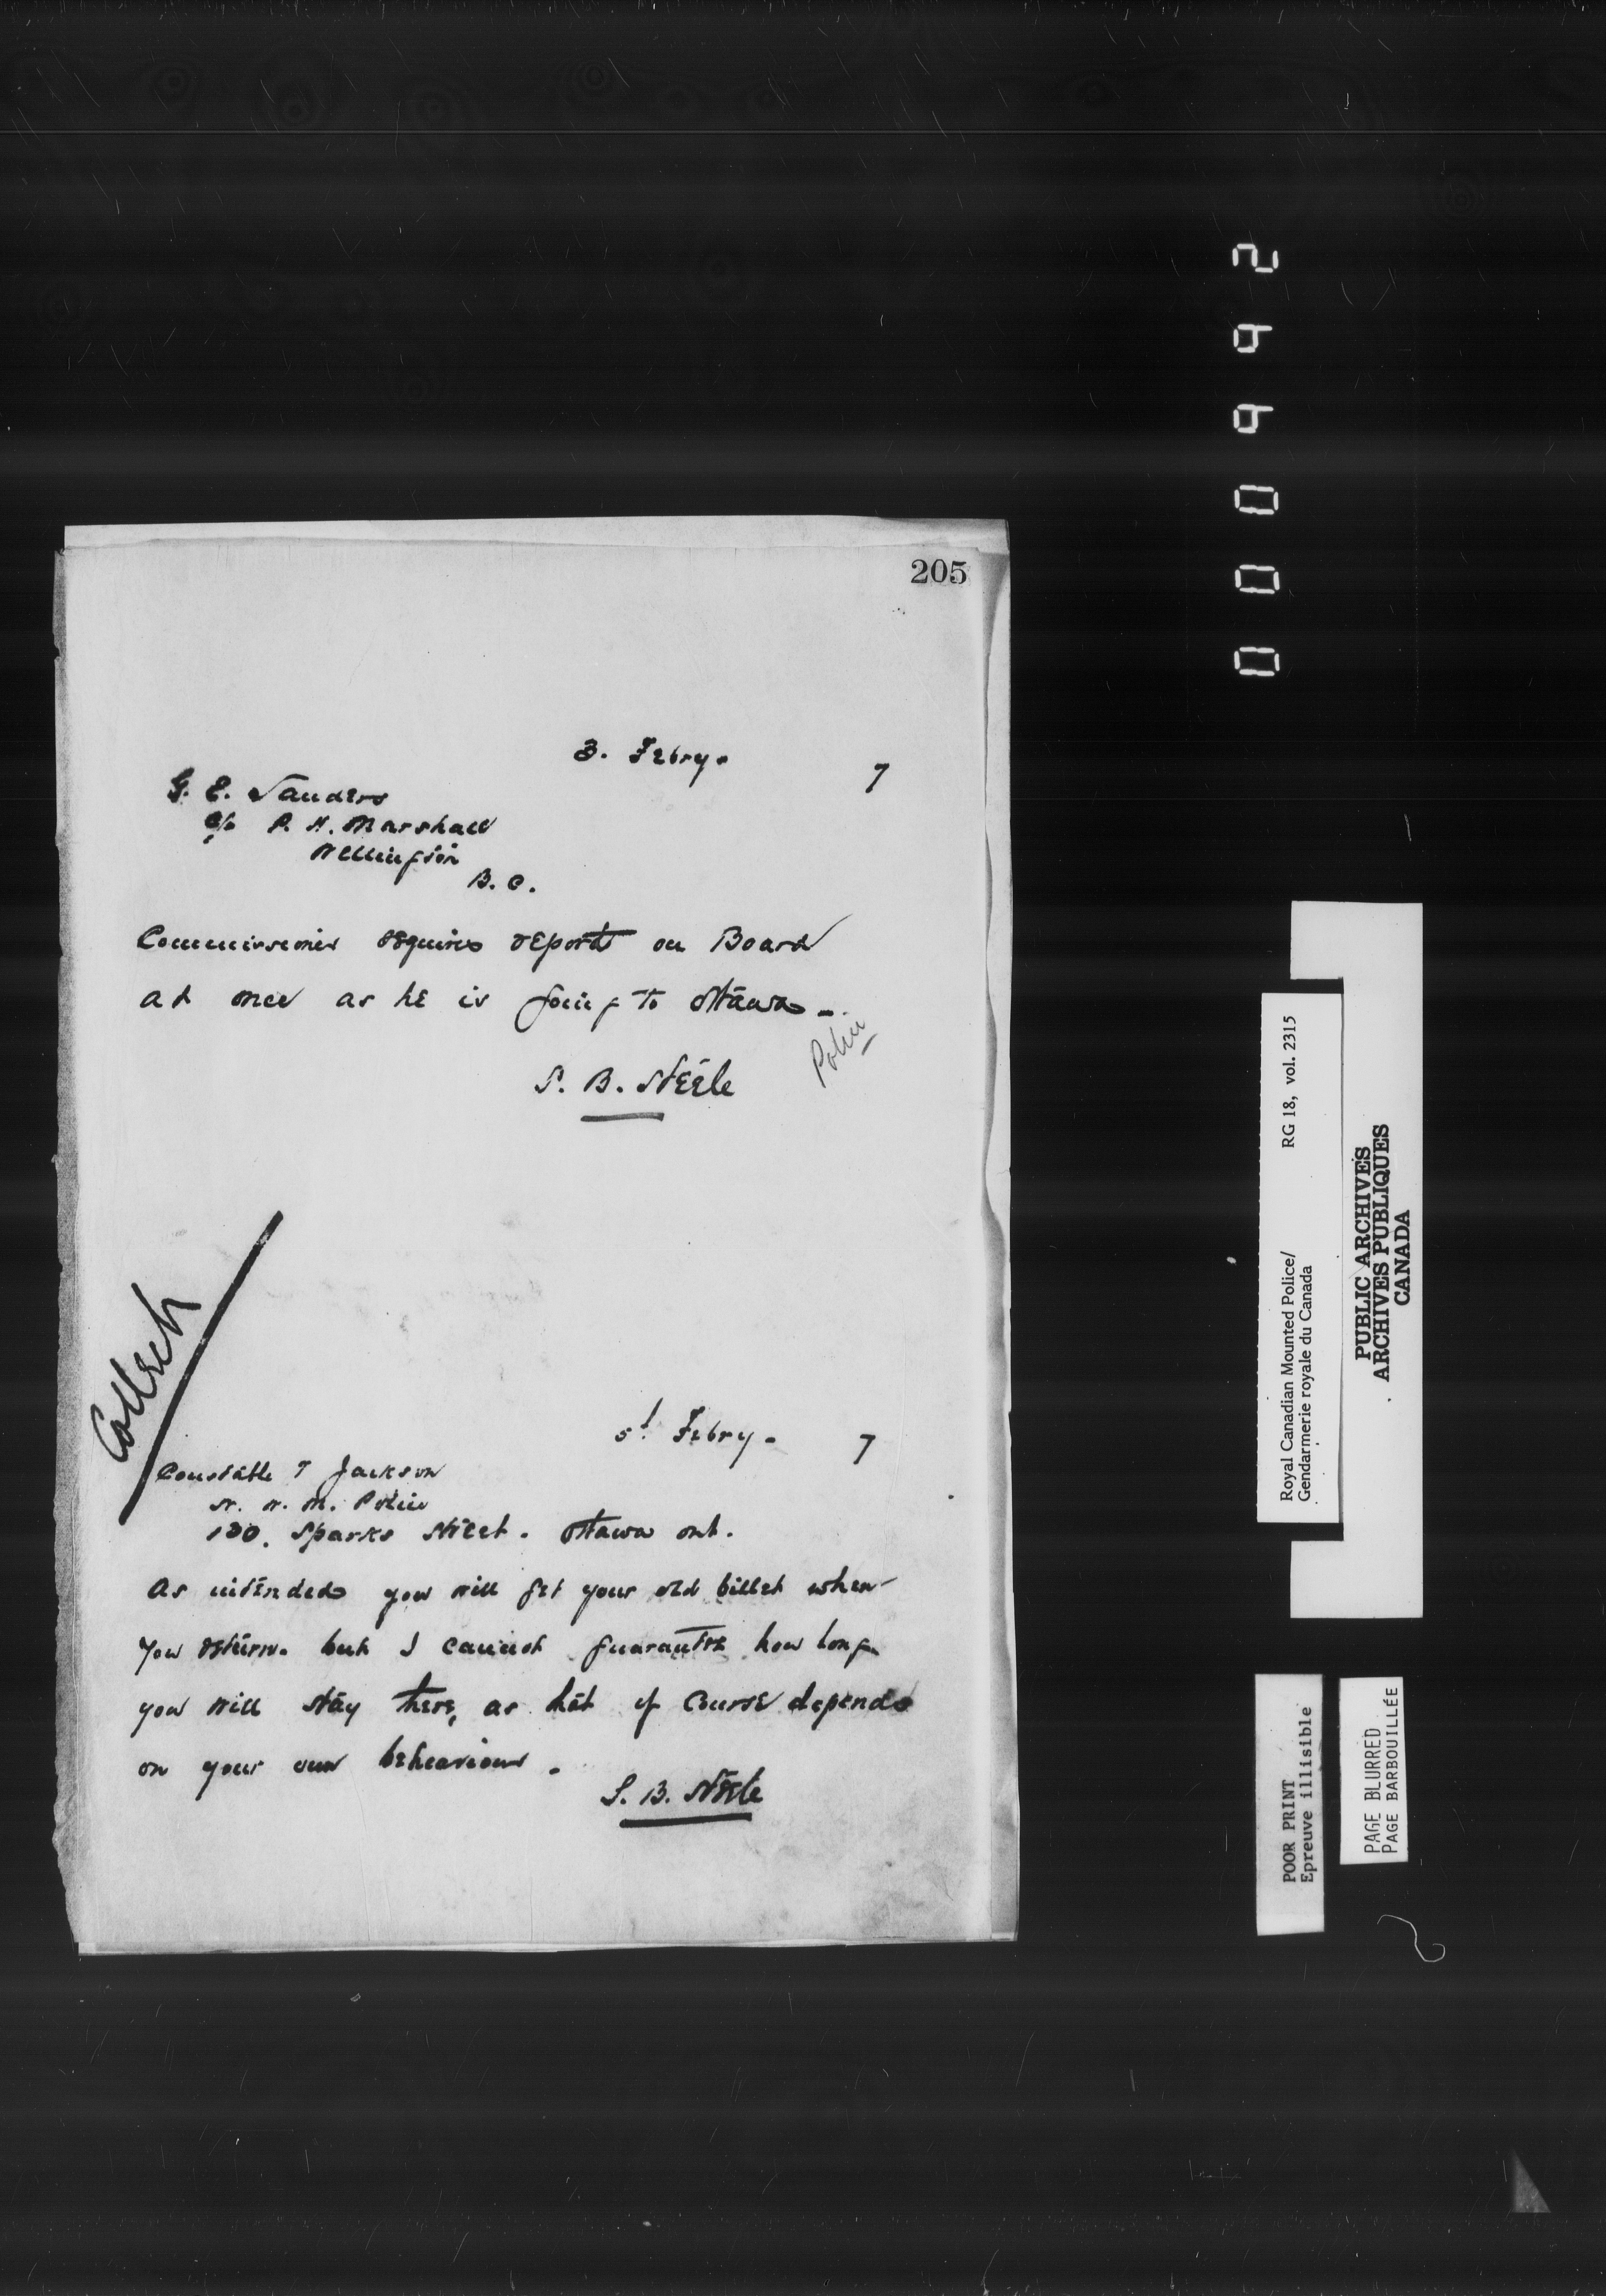 205
3. Febry. 7
G. E. Sanders
c/o P. H. Marshall
Wellington
B. C.
Commissioner requires report on Board
at once as he is going to Ottawa -
Police
S. B. Steele
Collect
5t Febry. 7
Constable T Jackson
N. W. M. Police
130. Sparks Street. Ottawa Ont.
As intended you will get your old billet when
you return. but I cannot guarantee how long
you will stay there, as that of course depends
on your own behaviour.
S. B. Steele
000992
Royal Canadian Mounted Police/ RG 18, vol. 2315
Gendarmerie royale du Canada
PUBLIC ARCHIVES
ARCHIVES PUBLIQUES
CANADA
POOR PRINT
Epreuve illisible
PAGE BLURRED
PAGE BARBOUILLÉE